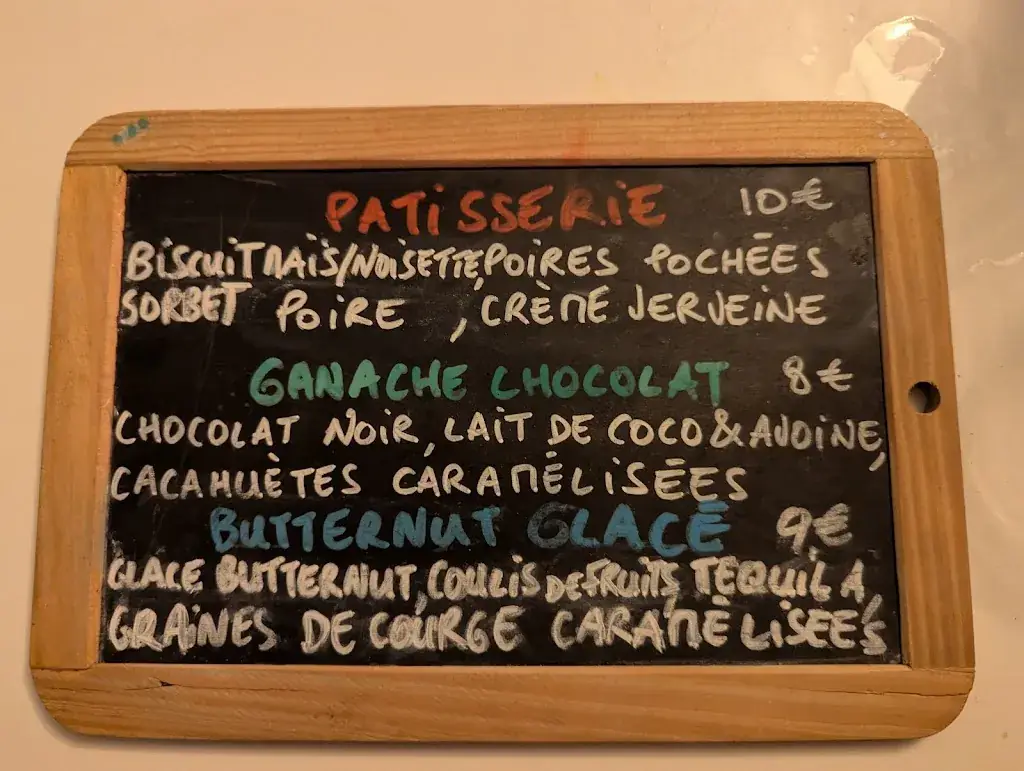 PATISSERIE 10€
BISCUIT MAÏS/NOISETTE, POIRES POCHÉES
SORBET POIRE, CRÈME VERVEINE
GANACHE CHOCOLAT 8€
CHOCOLAT NOIR, LAIT DE COCO & AVOINE,
CACAHUÈTES CARAMÉLISÉES
BUTTERNUT GLACÉ 9€
GLACE BUTTERNUT, COULIS DE FRUITS, TEQUILA,
GRAINES DE COURGE CARAMÉLISÉES